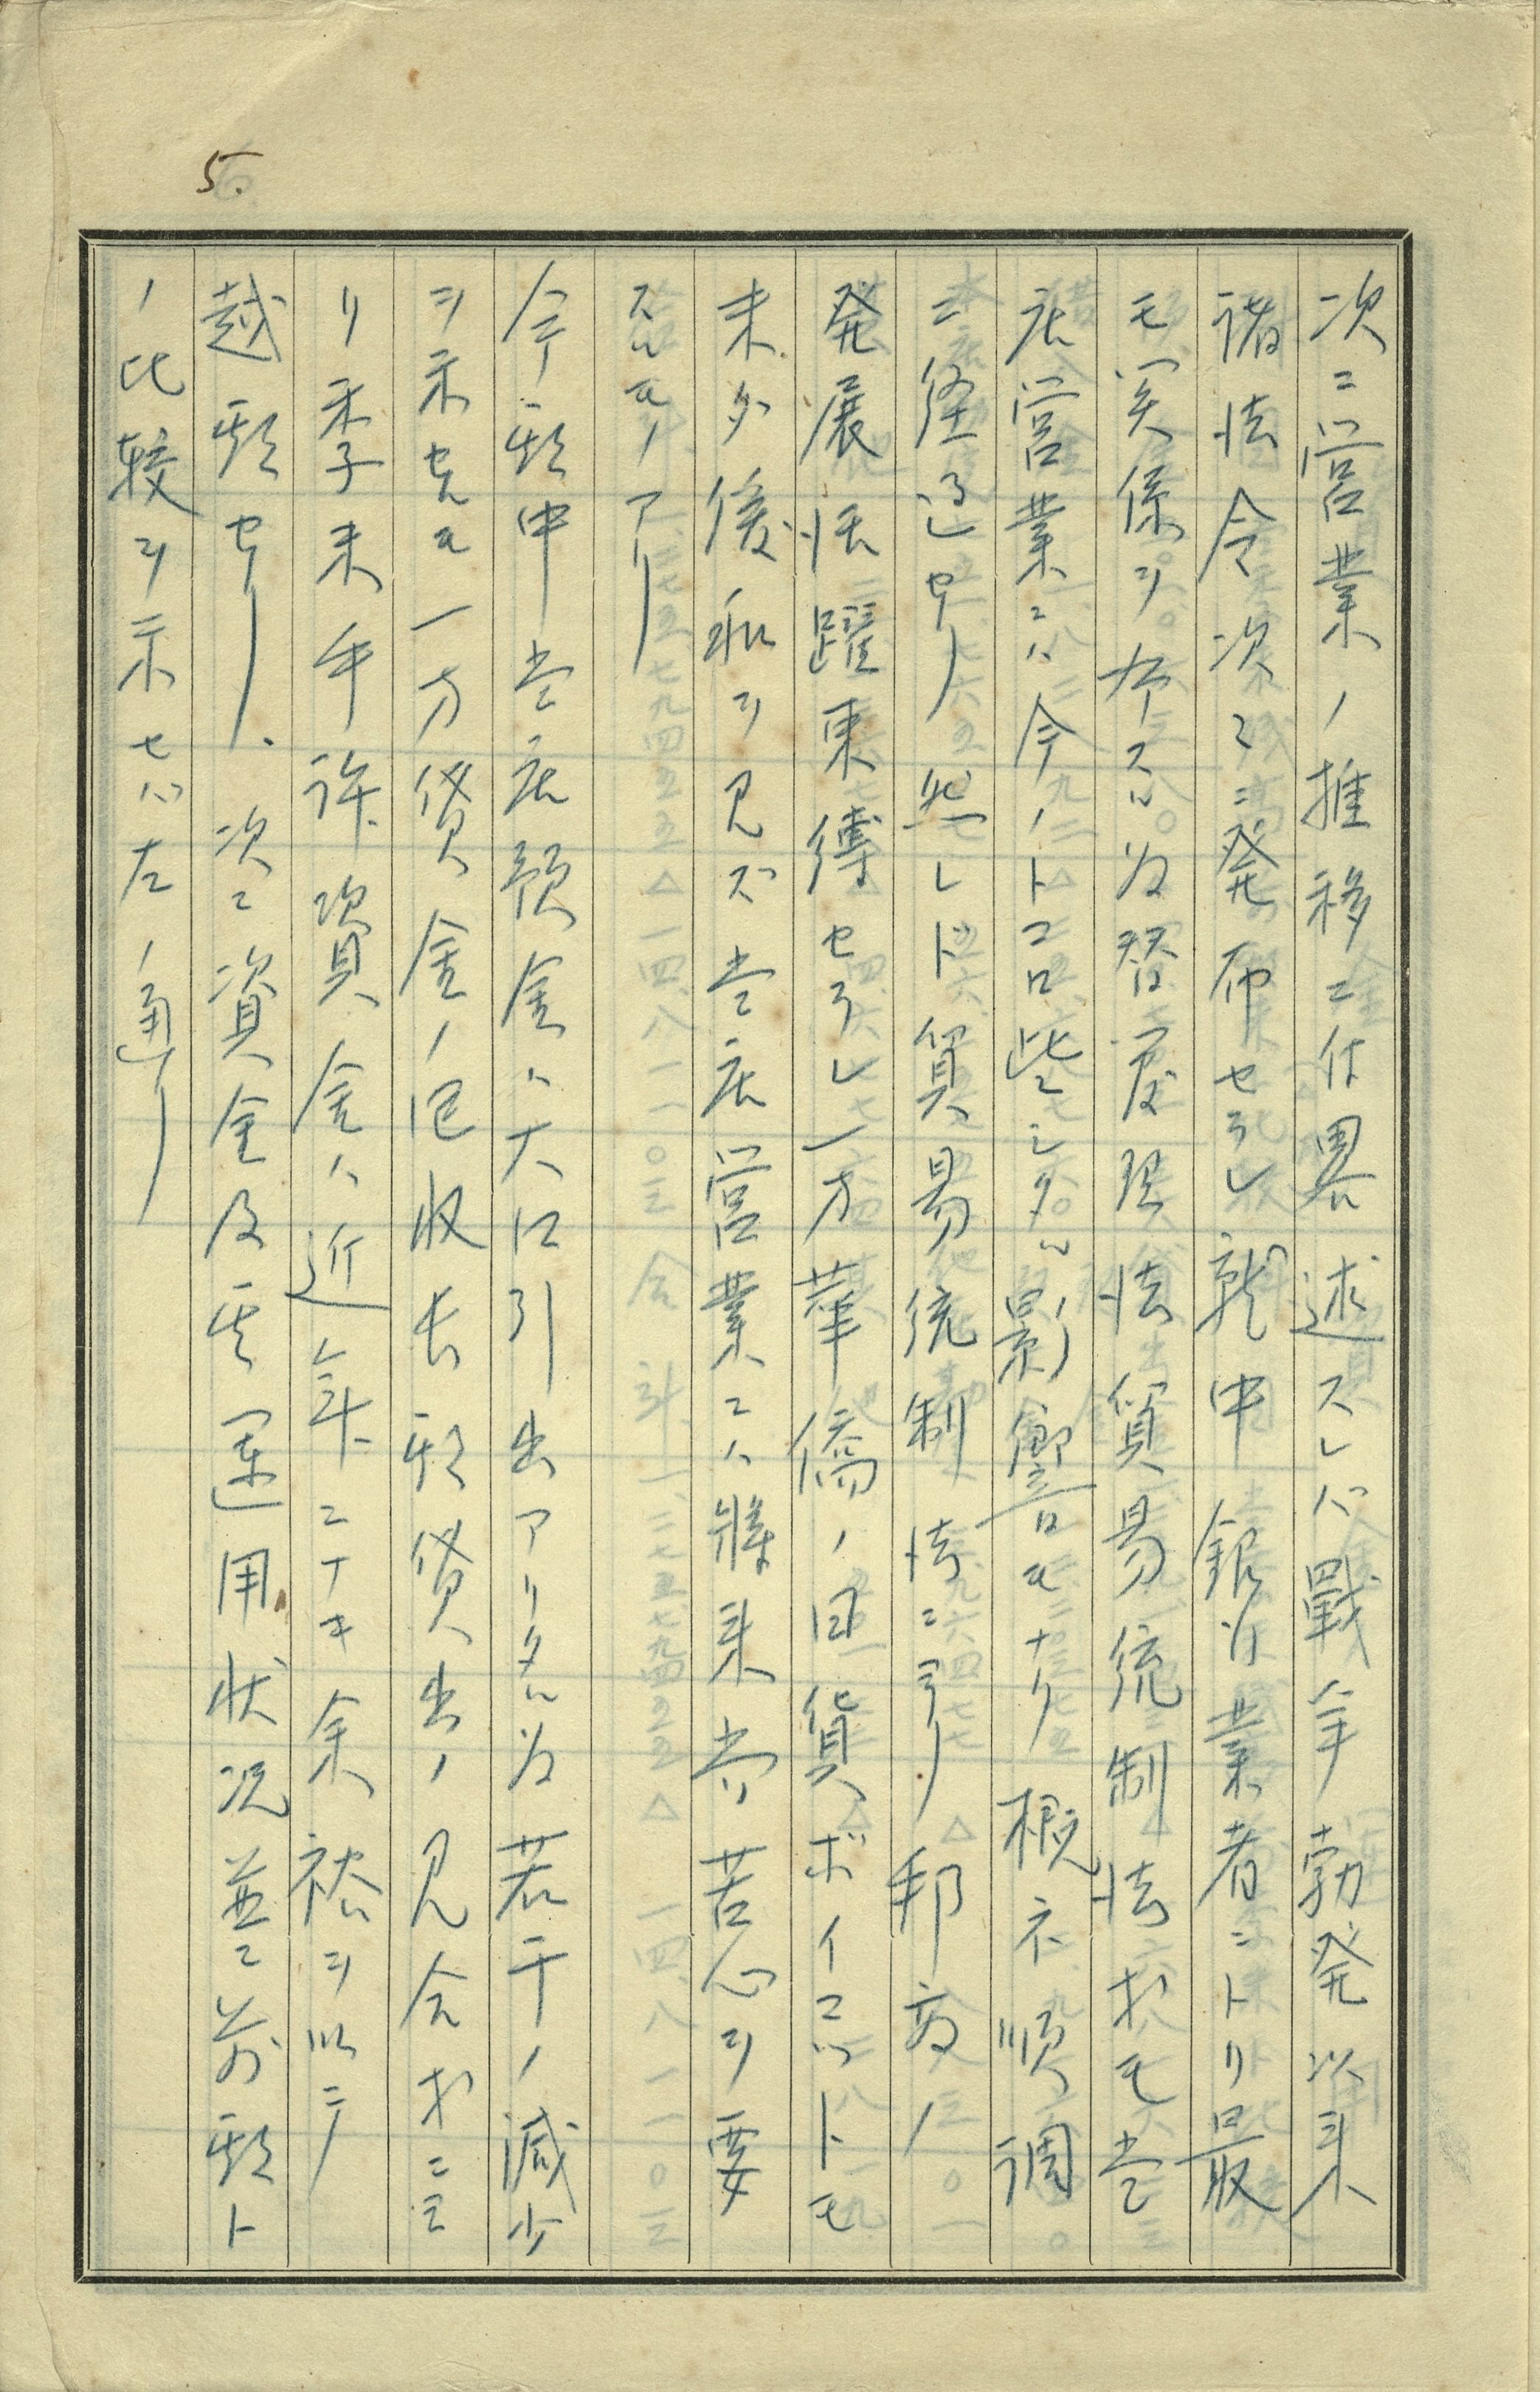 5.
次ニ営業ノ推移ニ付畧述スレバ戰争勃発以来
諸法令次々ニ発布セラレ就中銀行業者ニトリ最
モ関係ヲ有スル為替管理法貿易統制法オモ当
店営業ニハ今ノトコロ些シタル影響モナク概ネ順調
ニ経過セリ 然レドモ貿易統制法ニヨリ邦商ノ
発展活躍束縛セラレ一方華僑ノ日貨ボイコットモ
未ダ緩和ヲ見ズ当店営業ニハ将来尚苦心ヲ要
スルモノアリ
今期中当店預金ハ大口引出アリタル為若干ノ減少
ヲ示セルモ一方貸金ノ回収ト新貸出ノ見合オニヨ
リ季末手許資金ハ近年ニナキ余裕ヲ以テ
越期セリ. 次ニ資金及其運用状況並ニ前期ト
ノ比較ヲ示セバ左ノ通リ